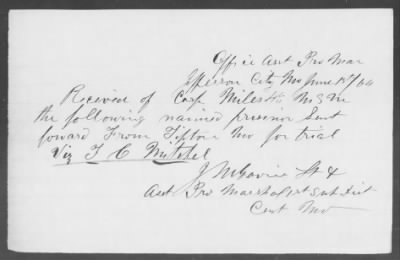 Office Asst Pro Mar
Jefferson City Mo June 15/64
Received of Corp Miles M S M
the following named presnor Sent
forward From Tipton Mo for trial
Viz T C Mitchel
J McGovine Lt &
Asst Pro Marshal 1st Sub Dist
Cent Mo